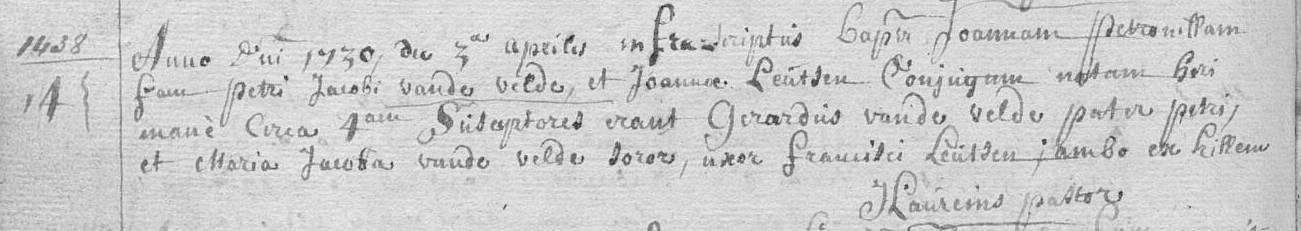 1438
14
Anno Dni 1730, die 3a aprilis infrascriptus bapt. Joannam petronillam
fam petri Jacobi vande velde, et Joannæ Leütsen Conjugum natam heri
manè Circa 4am Süsceptores erant Gerardüs vande velde pater petri,
et Maria Jacoba vande velde soror, uxor francisci Leütsen, ambo ex killem
pastor